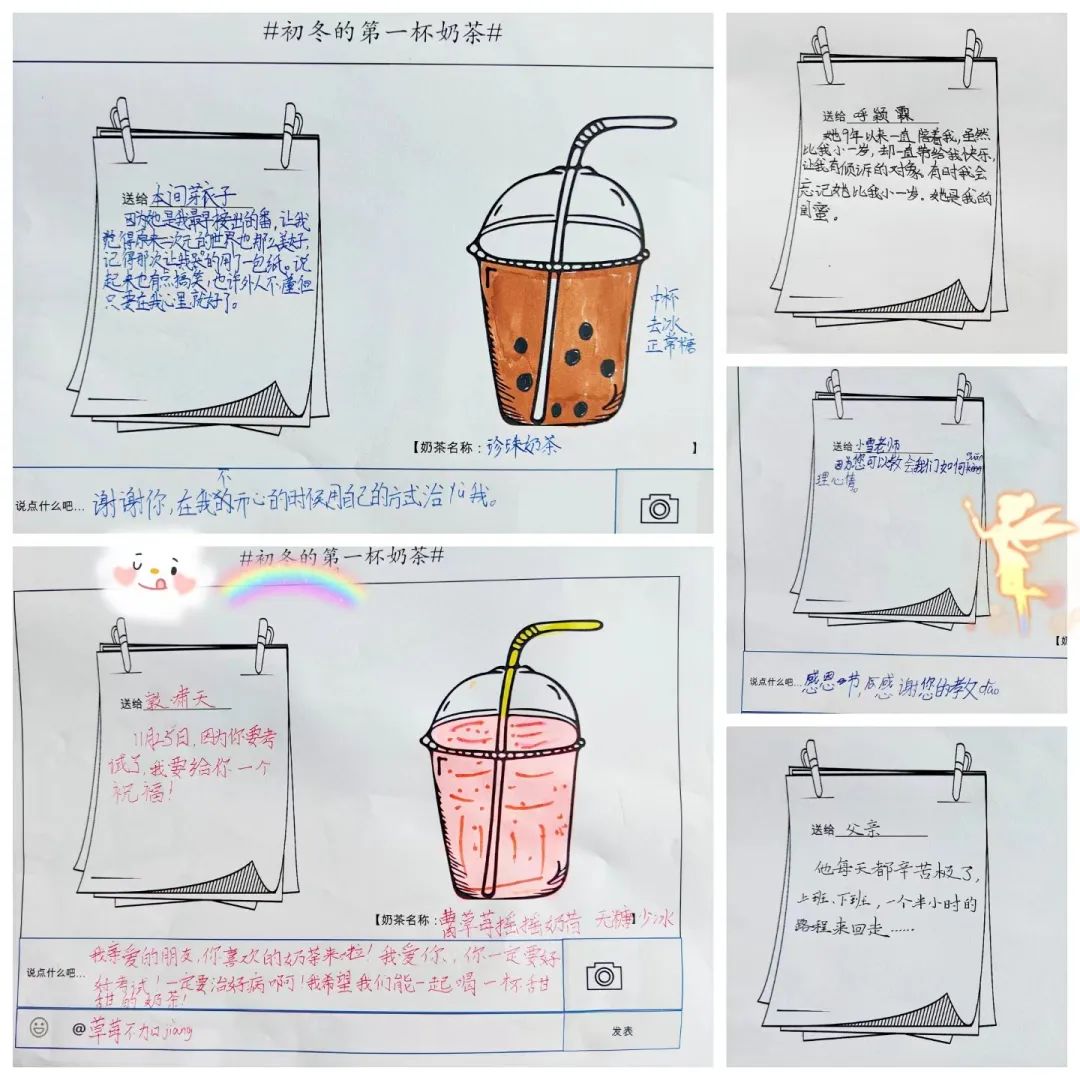 #初冬的第一杯奶茶#
送给 本间芽衣子
因为她是我最早接出的番,让我
觉得原来二次元的世界也那么美好
记得那次让我哭的用了一包纸。说
起来也有点搞笑,也许外人不懂但
只要在我心里就好了。
中杯
去冰
正常糖
【奶茶名称:珍珠奶茶 】
不
说点什么吧... 谢谢你,在我的开心的时候用自己的方式治yu我。
#初冬的第一杯奶茶#
送给 敦肃天
11月25日,因为你要考
试了,我要给你一个
祝福!
【奶茶名称:草莓摇摇奶昔 无糖】少冰
我亲爱的朋友,你喜欢的奶茶来啦!我爱你,你一定要好
说点什么吧...
好考试!一定要治好病啊!我希望我们能一起喝一杯甜
甜的奶茶!
@草莓不加jiang
发表
送给 呼颖霖
她9年以来一直陪着我,虽然
比我小一岁,却一直带给我快乐,
让我有倾诉的对象,有时我会
忘记她比我小一岁。她是我的
闺蜜。
送给 小雪老师
因为您可以教会我们如何guǎn
理心情。
【奶
说点什么吧... 感恩节感谢您的教dǎo
送给 父亲
他每天都辛苦极了,
上班、下班,一个半小时的
路程来回走……